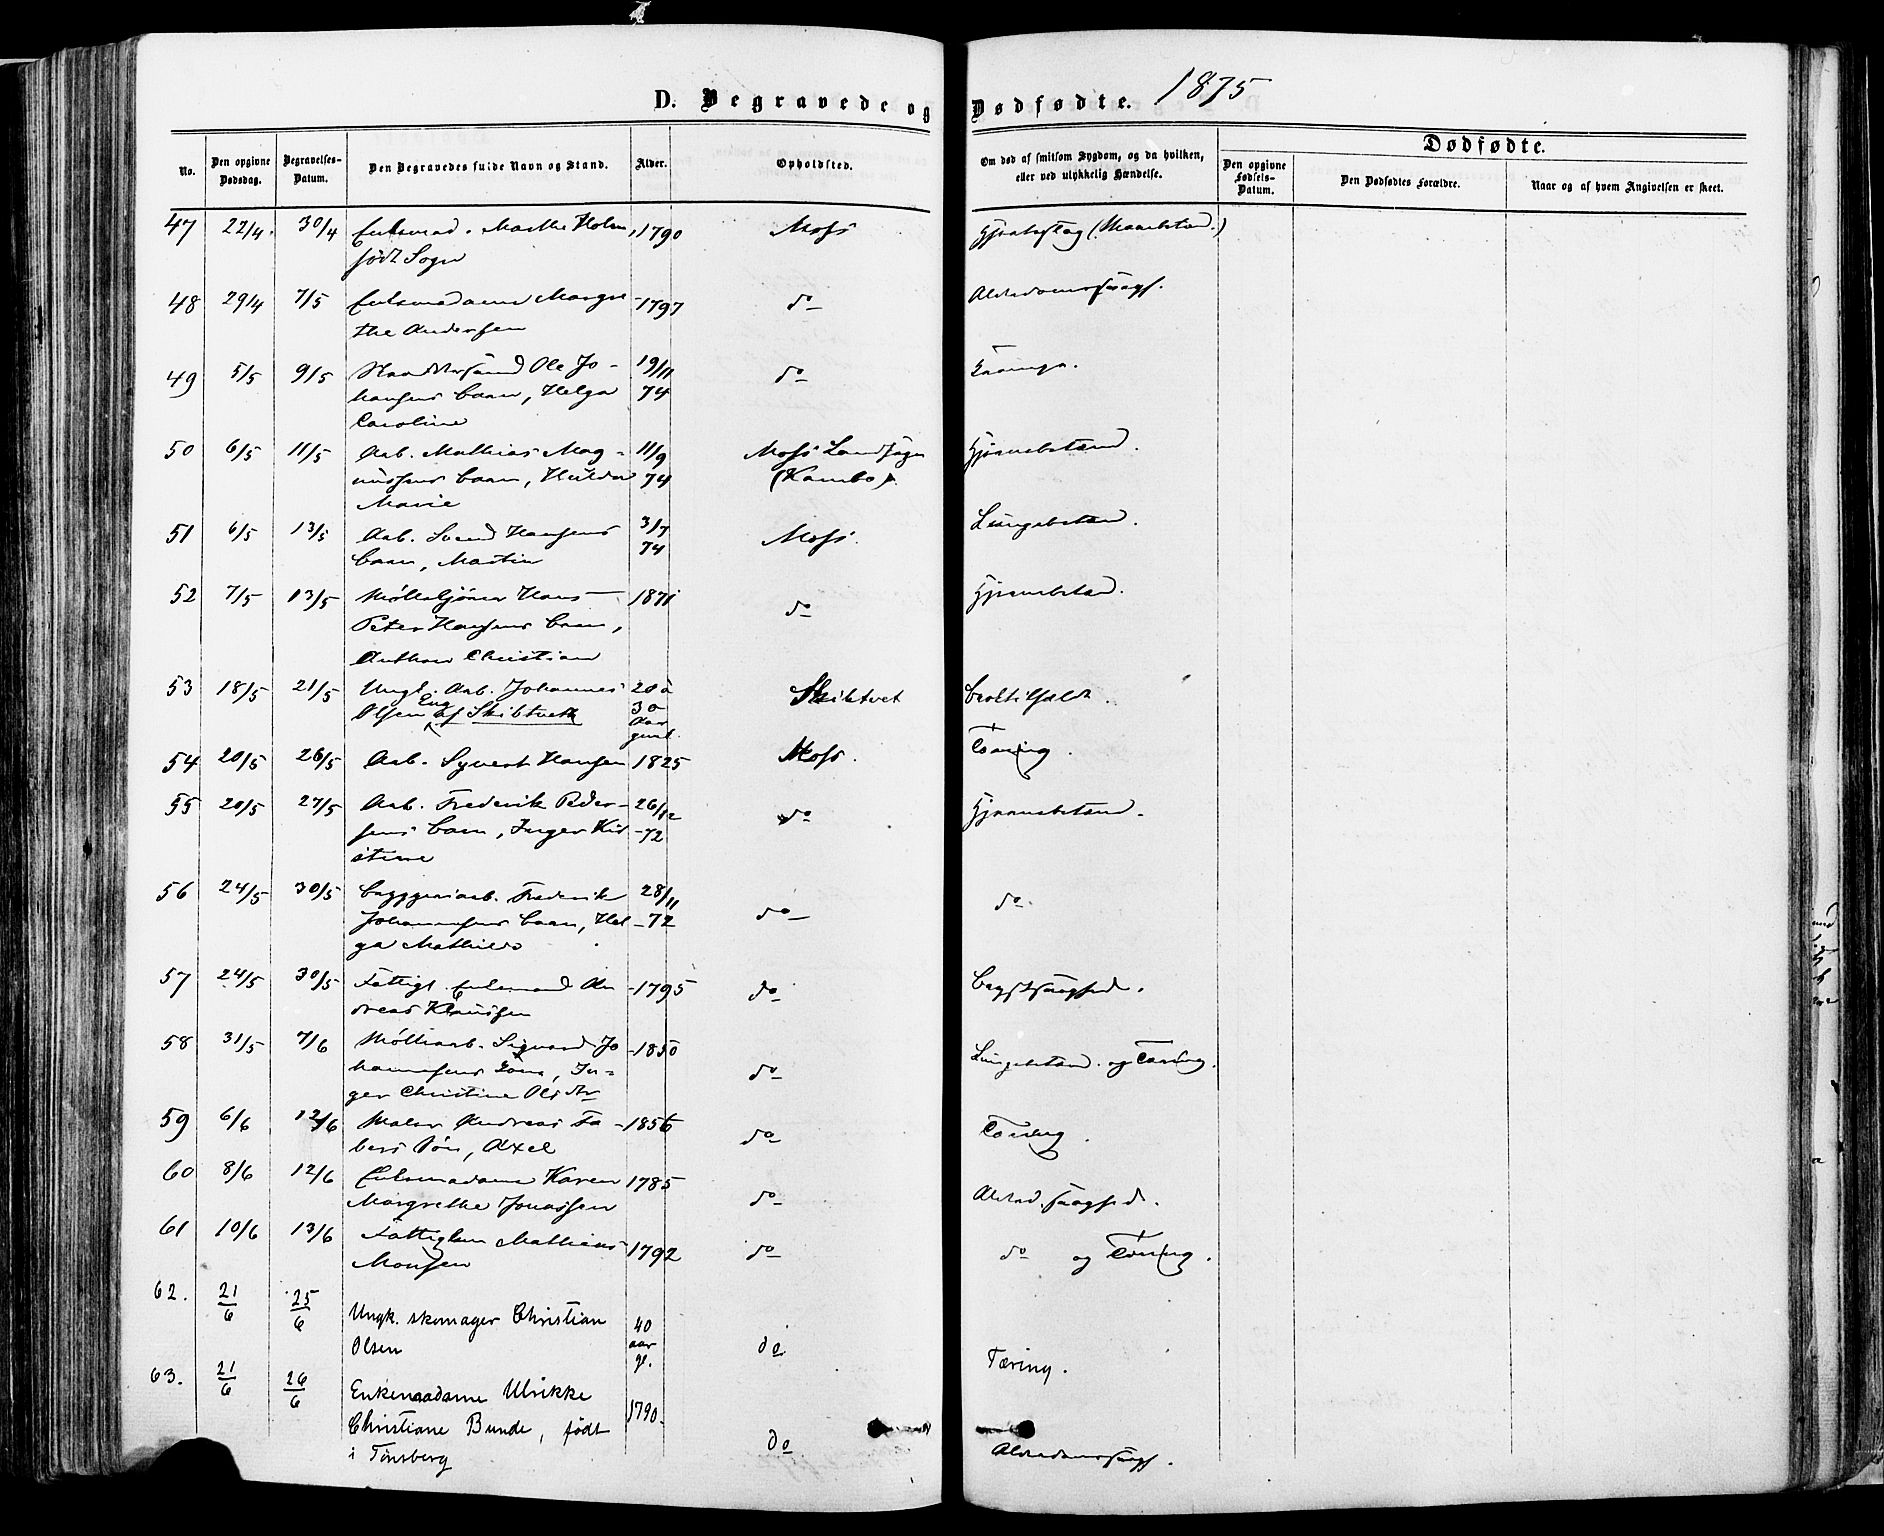 D. Begravede og Dødfødte. 1875
No.
Den opgivne Dødsdag.
Begravelses-Datum.
Den Begravedes fulde Navn og Stand.
Alder.
Opholdsted.
Om død af smitsom Sygdom, og da hvilken, eller ved ulykkelig Hændelse.
Dødfødte.
Den opgivne Fødsels-Datum.
Den Dødfødtes Forældre.
Naar og af hvem Angivelsen er skeet.
47 30/4 Marthe Holm, 1790 Moss
født Sogn
48 29/4 7/5 Enkemadame Margre- 1797 do Alderdomssvagh.
the Andersen
49 5/5 9/5 Ole Jo- 19/11 do
hansens Barn, Helga 74
Caroline
50 6/5 11/5 Arb. Mathias Mag- 11/9 Moss Landsogn
nussens Barn, Hulda 74 (Kambo).
Marie
51 6/5 13/5 Arb. Svend Hansens 3/7 Moss. Lungebetænd.
Barn, Martin 74
52 7/5 13/5 Hans 1871 do
Peter Hansens Barn,
Anthon Christian
53 18/5 21/5 Ungk. Arb. Johannes 20 a Skibtvet
Olsen Eng af Skibtveth 30
Aar
gml.
54 20/5 26/5 Arb. Syvert Hansen 1825 Moss. Tæring.
55 20/5 27/5 Arb. Frederik Peder- 26/12 do Hjernebetænd.
sens Barn, Inger Kir- 72
stine
56 24/5 30/5 Frederik 28/11 do do
Johannesens Barn, Hel- 72
ga Mathilde
57 24/5 30/5 Fattigl. Enkemand An- 1795 do Brystsvaghed.
dreas Klaussen
58 31/5 7/6 Sigvard Jo- 1850 do Lungebetænd. og Tæring.
hannesens Kone, In-
ger Christine Olsdtr
59 6/6 12/6 Maler Andreas Fa- 1856 do Tæring.
bers Søn, Axel
60 8/6 12/6 Enkemadame Karen 1785 do Alderd.svaghed.
Margrethe Jonassen
61 10/6 13/6 Fattiglem Mathias 1792 do do og Tæring.
Monsen
62. 21/6 25/6 Ungk. skomager Christian 40
Olsen aar do Tæring.
gl.
63. 21/6 26/6 Enkemadame Ulrikke 1790.
Christiane Bunde, født do Alderdomssvagh.
i Tønsberg